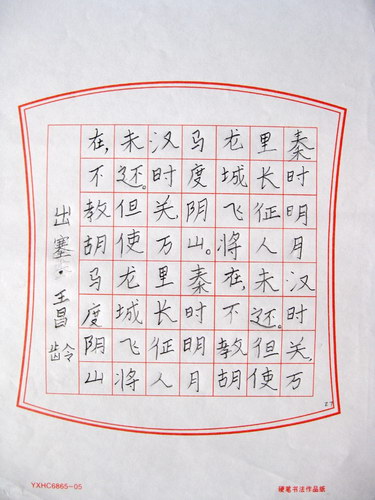 秦时明月汉时关,万
里长征人未还。但使
龙城飞将在,不教胡
马度阴山。秦时明月
汉时关,万里长征人
未还。但使龙城飞将
在,不教胡马度阴山
出塞·王昌龄
YXHC6865-05
硬笔书法作品纸